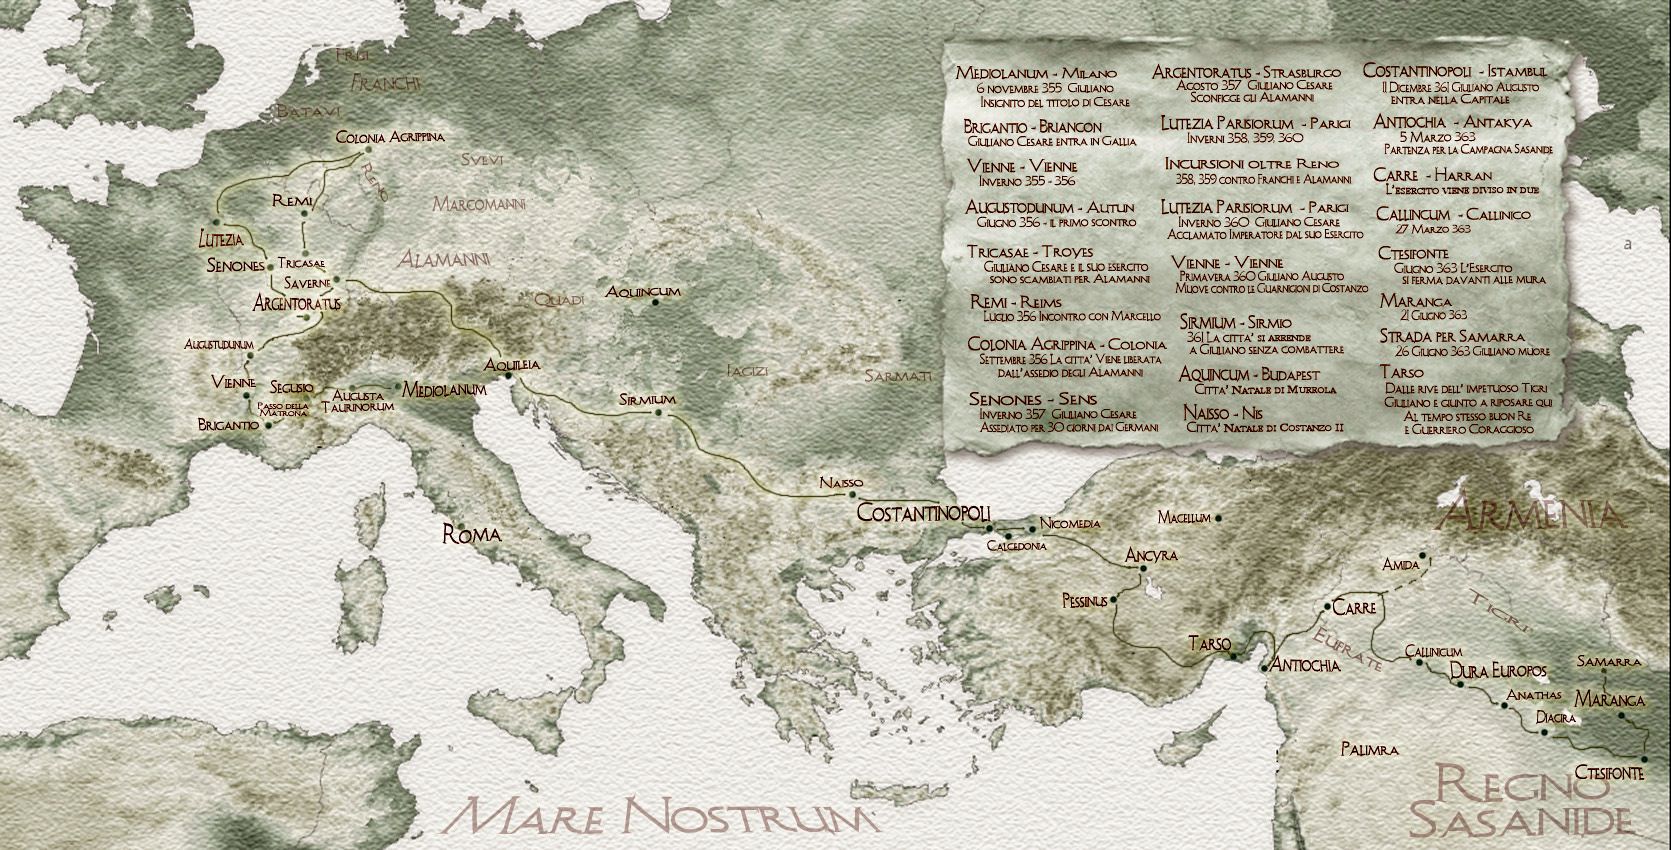 Frisi
Franchi
Batavi
Colonia Agrippina
Reno
Svevi
Marcomanni
Remi
Lutezia
Senones
Tricasae
Saverne
Alamanni
Argentoratus
Quadi
Aquincum
Augustudunum
Vienne
Segusio
Passo della
Matrona
Augusta
Taurinorum
Mediolanum
Aquileia
Iacizi
Sarmati
Brigantio
Sirmium
Roma
Naisso
Costantinopoli
Nicomedia
Calcedonia
Macellum
Ancyra
Pessinus
Tarso
Antiochia
Armenia
Amida
Carre
Tigri
Eufrate
Callinicum
Dura Europos
Samarra
Anathas
Maranga
Diacira
Palimra
Ctesifonte
Regno
Sasanide
Mare Nostrum
Mediolanum - Milano
6 novembre 355 Giuliano
Insignito del titolo di Cesare
Brigantio - Briancon
Giuliano Cesare entra in Gallia
Vienne - Vienne
Inverno 355 - 356
Augustodunum - Autun
Giugno 356 - il primo scontro
Tricasae - Troyes
Giuliano Cesare e il suo esercito
sono scambiati per Alamanni
Remi - Reims
Luglio 356 Incontro con Marcello
Colonia Agrippina - Colonia
Settembre 356 La citta' viene liberata
dall'assedio degli Alamanni
Senones - Sens
Inverno 357 Giuliano Cesare
Assediato per 30 giorni dai Germani
Argentoratus - Strasburgo
Agosto 357 Giuliano Cesare
Sconfigge gli Alamanni
Lutezia Parisiorum - Parigi
Inverni 358, 359, 360
Incursioni oltre Reno
358, 359 contro Franchi e Alamanni
Lutezia Parisiorum - Parigi
Inverno 360 Giuliano Cesare
Acclamato Imperatore dal suo Esercito
Vienne - Vienne
Primavera 360 Giuliano Augusto
Muove contro le Guarnigioni di Costanzo
Sirmium - Sirmio
361 La citta' si arrende
a Giuliano senza combattere
Aquincum - Budapest
Citta' Natale di Murrola
Naisso - Nis
Citta' Natale di Costanzo II
Costantinopoli - Istambul
11 Dicembre 361 Giuliano Augusto
entra nella Capitale
Antiochia - Antakya
5 Marzo 363
Partenza per la Campagna Sasanide
Carre - Harran
L'esercito viene diviso in due
Callincum - Callinico
27 Marzo 363
Ctesifonte
Giugno 363 L'Esercito
si ferma davanti alle mura
Maranga
21 Giugno 363
Strada per Samarra
26 Giugno 363 Giuliano muore
Tarso
Dalle rive dell' impetuoso Tigri
Giuliano e giunto a riposare qui
Al tempo stesso buon Re
e Guerriero Coraggioso
a